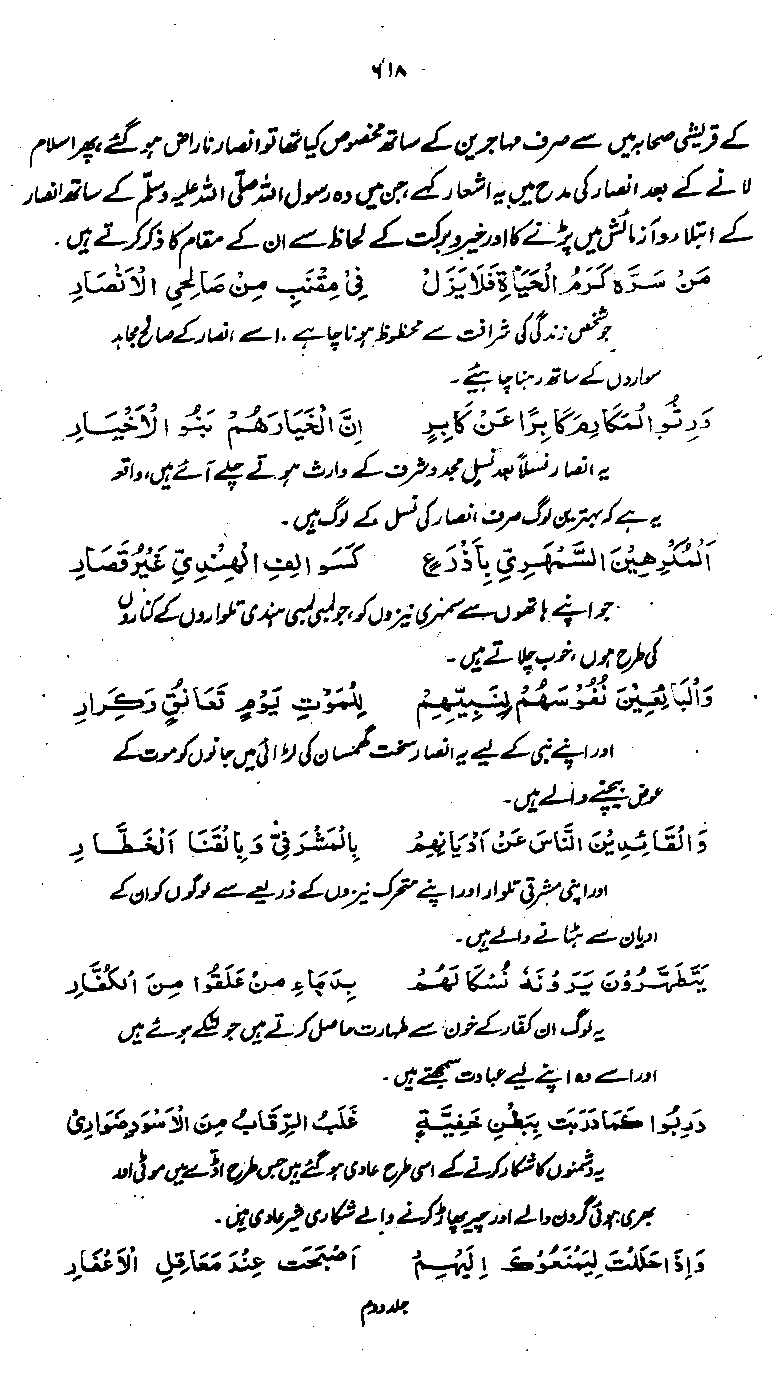 ۶۱۸
کے قریشی صحابہ میں سے صرف مہاجرین کے ساتھ مخصوص کیا تھا تو انصار ناراض ہو گئے، پھر اسلام
لانے کے بعد انصار کی مدح میں یہ اشعار کہے جن میں وہ رسول اللہ صلّی اللہ علیہ وسلّم کے ساتھ انصار
کے ابتلاء و آزمائش میں پڑنے کا اور خیر و برکت کے لحاظ سے ان کے مقام کا ذکر کرتے ہیں ۔
مَنْ سَرَّهٗ كَرَمُ الْحَيَاةِ فَلَا يَزَلْ فِيْ مِقْنَبٍ مِنْ صَالِحِي الْاَنْصَارِ
جو شخص زندگی کی شرافت سے محظوظ ہونا چاہے ، اسے انصار کے صالح مجاہد
سواروں کے ساتھ رہنا چاہیئے ۔
وَرِثُوا الْمَكَارِمَ كَابِرًا عَنْ كَابِرٍ اِنَّ الْخِيَارَ هُمْ بَنُو الْاَخْيَارِ
یہ انصار نسلاً بعد نسلٍ مجد و شرف کے وارث ہوتے چلے آئے ہیں، واقعہ
یہ ہے کہ بہترین لوگ صرف انصار کی نسل کے لوگ ہیں ۔
اَلْمُكْرِهِيْنَ السَّمْهَرِيَّ بِاَذْرُعٍ كَسَوَالِفِ الْهِنْدِيِّ غَيْرُ قِصَارِ
جو اپنے ہاتھوں سے سمہری نیزوں کو، جو لمبی لمبی ہندی تلواروں کے کناروں
کی طرح ہوں ، خوب چلاتے ہیں ۔
وَالْبَائِعِيْنَ نُفُوْسَهُمْ لِنَبِيِّهِمْ لِلْمَوْتِ يَوْمَ تَعَانُقٍ وَكِرَارِ
اور اپنے نبی کے لیے یہ انصار سخت گھمسان کی لڑائی میں جانوں کو موت کے
عوض بیچنے والے ہیں ۔
وَالْقَائِدِيْنَ النَّاسَ عَنْ اَدْيَانِهِمْ بِالْمَشْرَفِيِّ وَبِالْقَنَا الْخَطَّارِ
اور اپنی مشرقی تلوار اور اپنے متحرک نیزوں کے ذریعے سے لوگوں کو ان کے
ادیان سے ہٹانے والے ہیں ۔
يَتَطَهَّرُوْنَ يَرَوْنَهٗ نُسُكًا لَهُمْ بِدِمَاءِ مَنْ عَلِقُوْا مِنَ الْكُفَّارِ
یہ لوگ ان کفار کے خون سے طہارت حاصل کرتے ہیں جو لٹکے ہوئے ہیں
اور اسے وہ اپنے لیے عبادت سمجھتے ہیں ۔
دَرِبُوْا كَمَا دَرَبَتْ بِبَطْنِ خَفِيَّةٍ غُلْبُ الرِّقَابِ مِنَ الْاُسُوْدِ ضَوَارِيْ
یہ دشمنوں کا شکار کرنے کے اسی طرح عادی ہو گئے ہیں جس طرح اڈے میں موٹی اور
بھری ہوئی گردن والے اور چیر پھاڑ کرنے والے شکاری شیر عادی ہیں ۔
وَاِذَا حَلَلْتَ لِيَمْنَعُوْكَ اِلَيْهِمْ اَصْبَحْتَ عِنْدَ مَعَاقِلِ الْاَعْفَارِ
جلد دوم